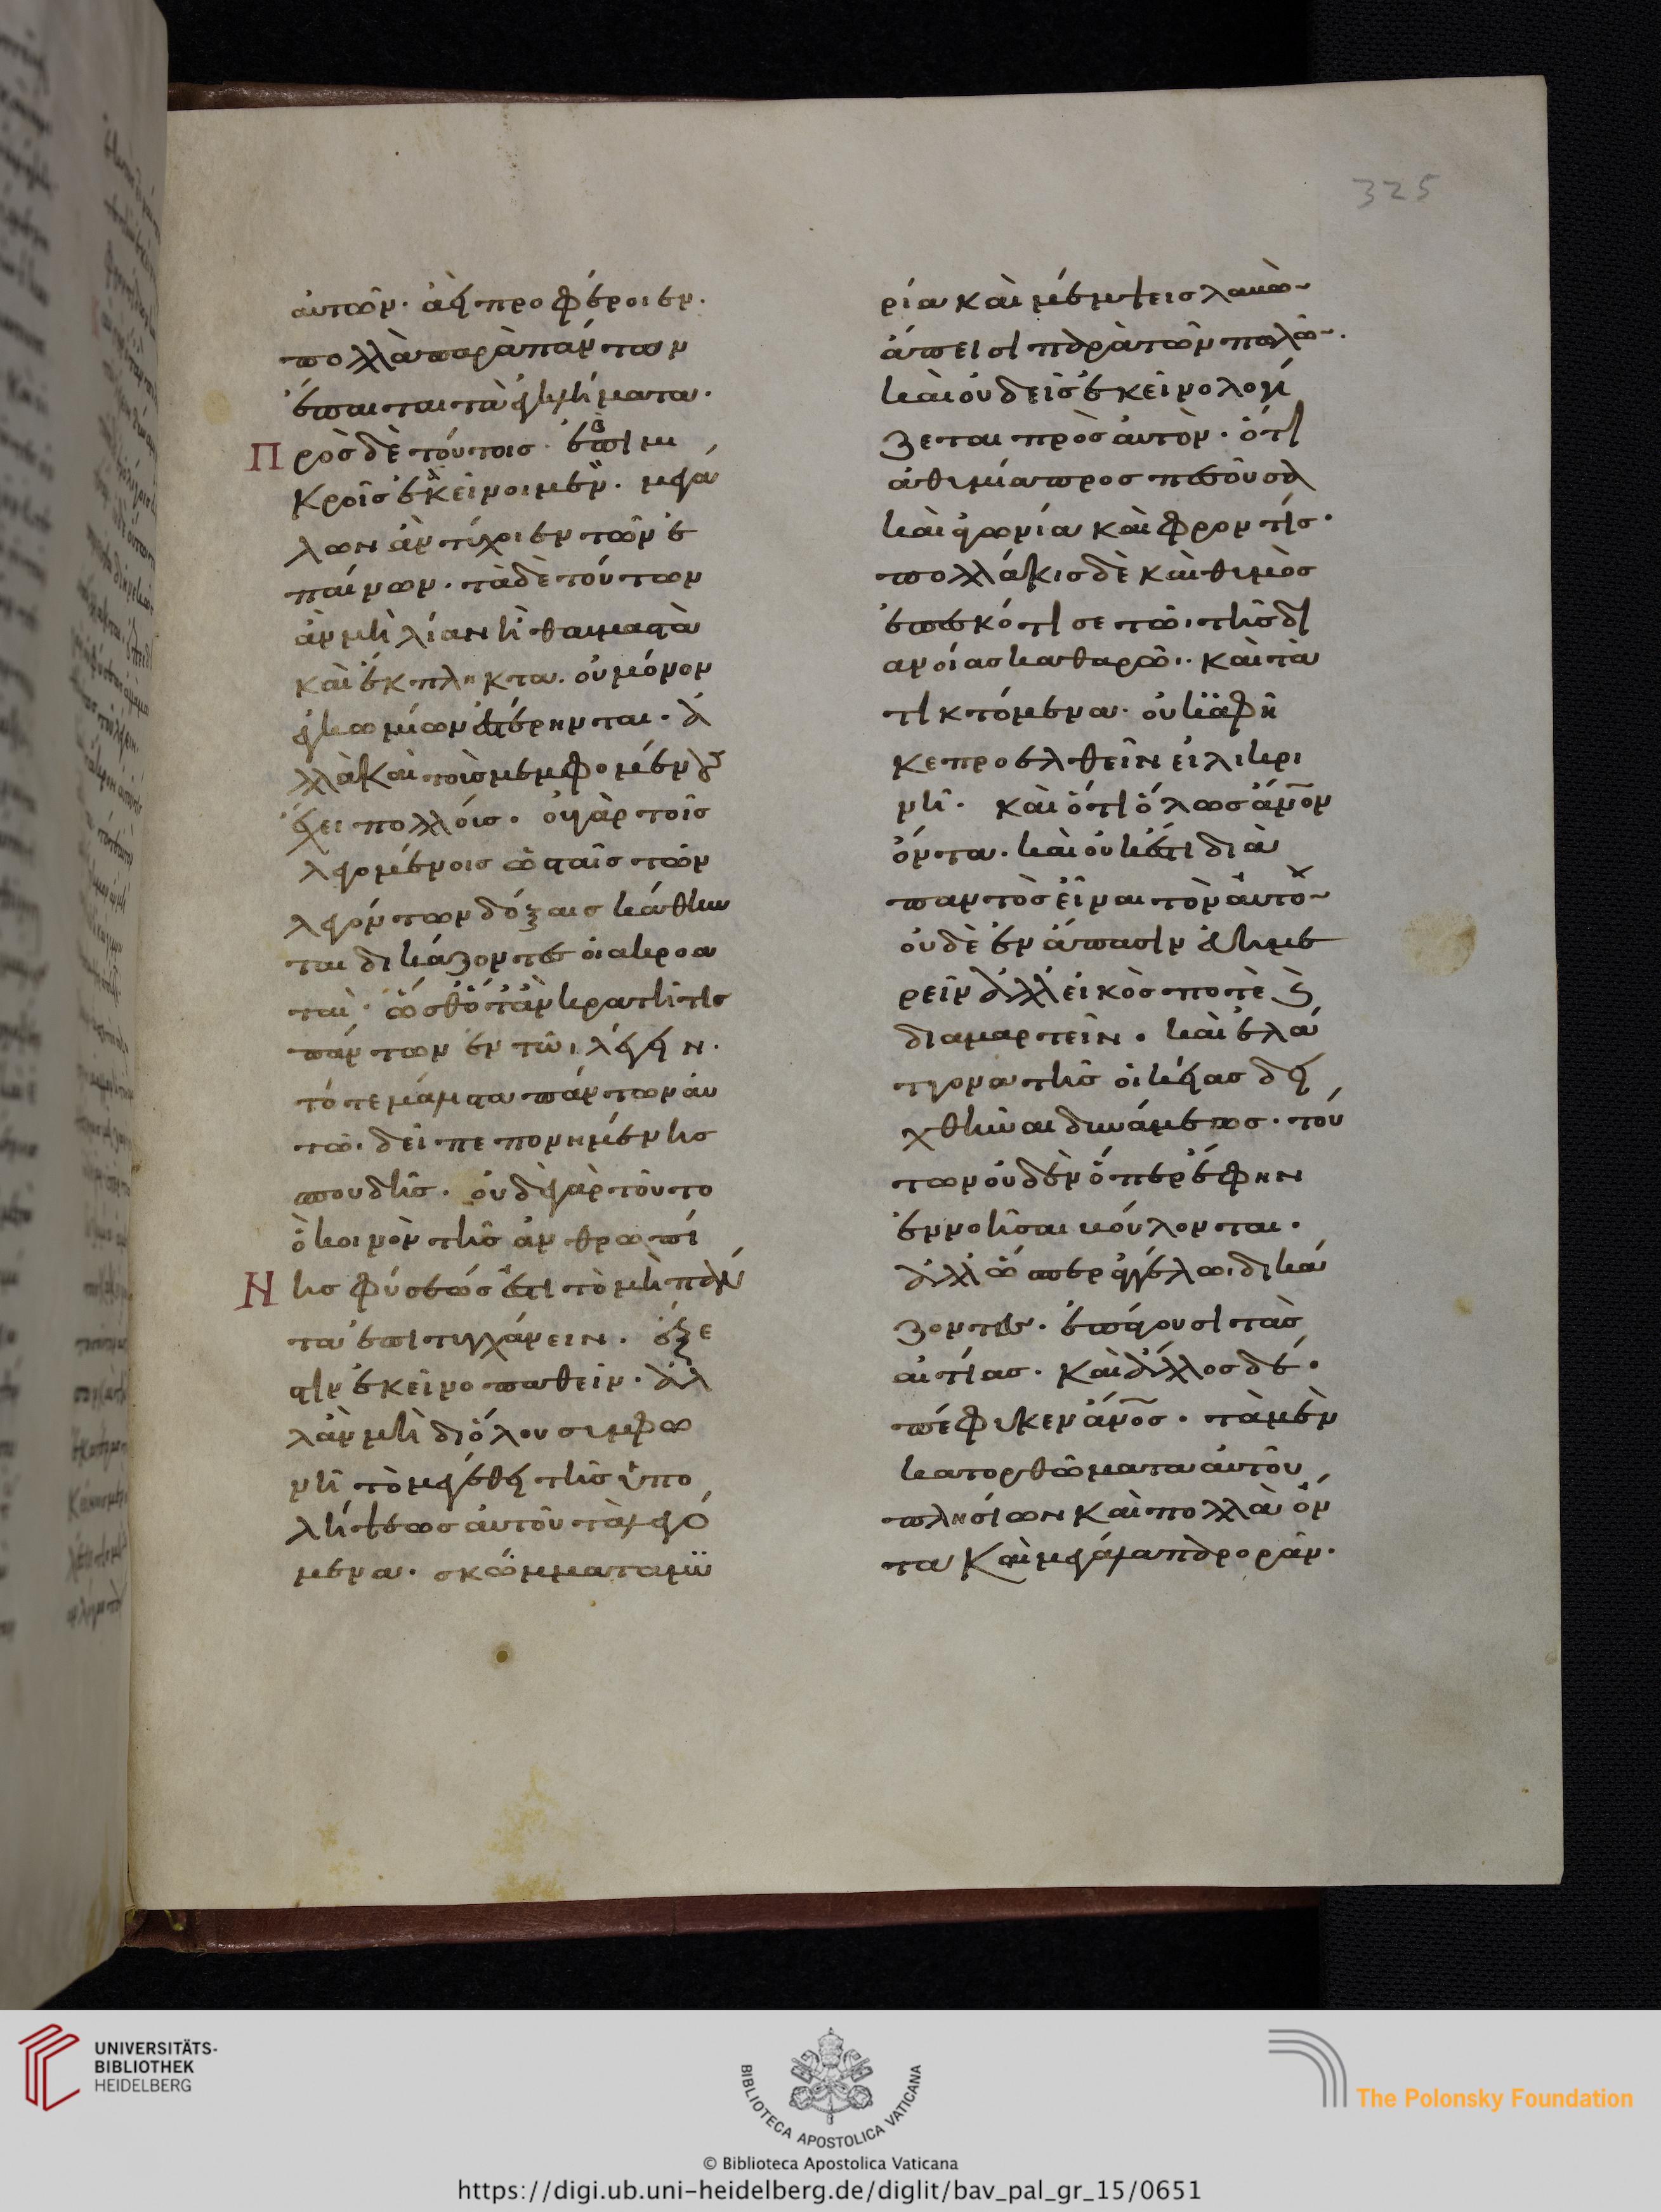 325
αὐτῶν· ἃ εἰ προφέροιεν.
πολλὰ παρὰ πάντων
ἕπεται τὰ ἐγκλήματα.
Πρὸς δὲ τούτοις· ἐπὶ μι
κροῖς ἐκεῖνοι μὲν· μεγά
λων ἂν τύχοιεν τῶν ἐ
παίνων· τὰ δὲ τούτων
ἂν μὴ λίαν ἦ θαυμαστὰ
καὶ ἔκπληκτα· οὐ μόνον
ἐγκωμίων ἐστέρηνται· ἀ
λλὰ καὶ τοὺς μεμφομένους
ἔχει πολλούς· οὐ γὰρ τοῖς
λεγομένοις ὡς ταῖς τῶν
λεγόντων δόξαις κάθην
ται δικάζοντες οἱ ἀκροα
ταί· ὥσθ' ὅταν κρατῆ τις
πάντων ἐν τῶι λέγειν.
τότε μάλιστα πάντων αὐ
τῶι δεῖ πεπονημένης
σπουδῆς· οὐδὲ γὰρ τοῦτο
ὃ κοινὸν τῆς ἀνθρωπί
Νης φύσεώς ἐστι τὸ μὴ πάν
τα ἐπιτυγχάνειν· ἔξε
στιν ἐκείνο παθεῖν· ἀλ
λ' ἂν μὴ δι' ὅλου συμφω
νῆ τὸ μέγεθει τῆς ὑπο
λήψεως αὐτοῦ τὰ λεγό
μενα· σκώμματα μυ
ρία καὶ μέμψεις λαβὼν
ἄπεισι παρὰ τῶν πολλῶν.
καὶ οὐδεὶς ἐκεῖνο λογί
ζεται πρὸς αὐτὸν· ὅτι
ἀθυμία προσπεσοῦσα
καὶ ἀγωνία καὶ φροντὶς·
πολλάκις δὲ καὶ θυμὸς
ἐπεσκότισε τῶι τῆς δι
ανοίας καθαρῶι· καὶ τὰ
τικτόμενα· οὐκ ἀφῆ
κε προελθεῖν εἰλικρι
νῆ· καὶ ὅτι ὅλως ἄνθρωπον
ὄντα· καὶ οὐκ ἔστι διὰ
παντὸς εἶναι τὸν αὐτὸν
οὐδὲ ἐν ἅπασιν εὐημε
ρεῖν ἀλλ' εἰκὸς ποτὲ καὶ
διαμαρτεῖν· καὶ ἐλά
ττονα τῆς οἰκείας δει
χθῆναι δυνάμεως· τού
των οὐδὲν ὅπερ ἔφην
ἐννοῆσαι βούλονται·
ἀλλ' ὥσπερ ἀγγέλωι δικά
ζοντες· ἐπάγουσι τὰς
αἰτίας· καὶ ἄλλως δέ·
πέφυκεν ἄνθρωπος· τὰ μὲν
κατορθώματα αὐτοῦ
πλησίον καὶ πολλὰ ὄν
τα καὶ μεγάλα παρορᾶν·
UNIVERSITÄTS-
BIBLIOTHEK
HEIDELBERG
BIBLIOTECA APOSTOLICA VATICANA
The Polonsky Foundation
© Biblioteca Apostolica Vaticana
https://digi.ub.uni-heidelberg.de/diglit/bav_pal_gr_15/0651